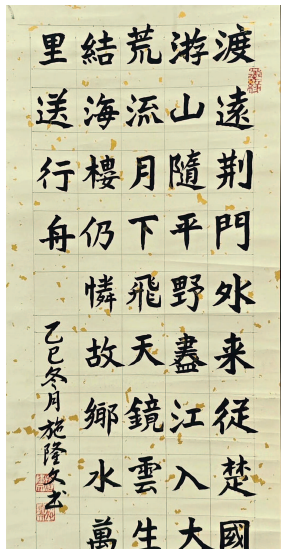 渡遠荆門外来従楚國
游山隨平野盡江入大
荒流月下飛天鏡雲生
結海樓仍憐故鄉水萬
里送行舟
乙巳冬月施隆文书